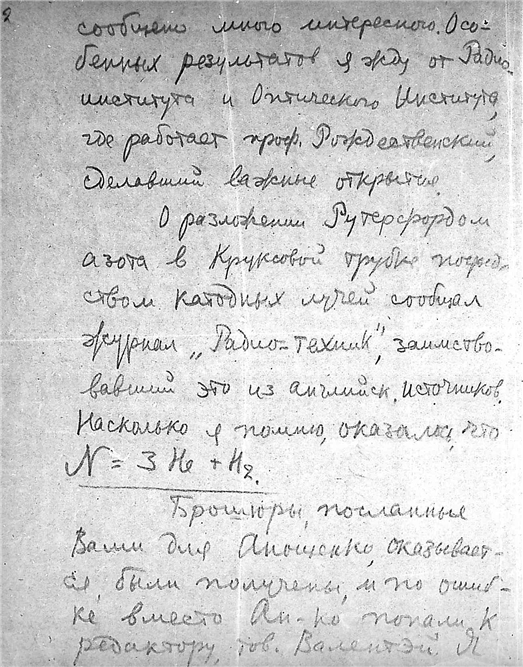 2
сообщено много интересного. Осо-
бенных результатов я жду от Радио-
института и Оптического Института,
где работает проф. Рождественский,
сделавший важные открытия.
О разложении Рутерфордом
азота в Круксовой трубке посред-
ством катодных лучей сообщал
журнал „Радио-техник", заимство-
вавший это из английск. источников.
Насколько я помню, оказалось, что
N = 3 He + H2.
Брошюры, посланные
Вами для Анощенко, оказывает-
ся, были получены, и по ошиб-
ке вместо Ан-ко попали к
редактору, тов. Валентэй. Я